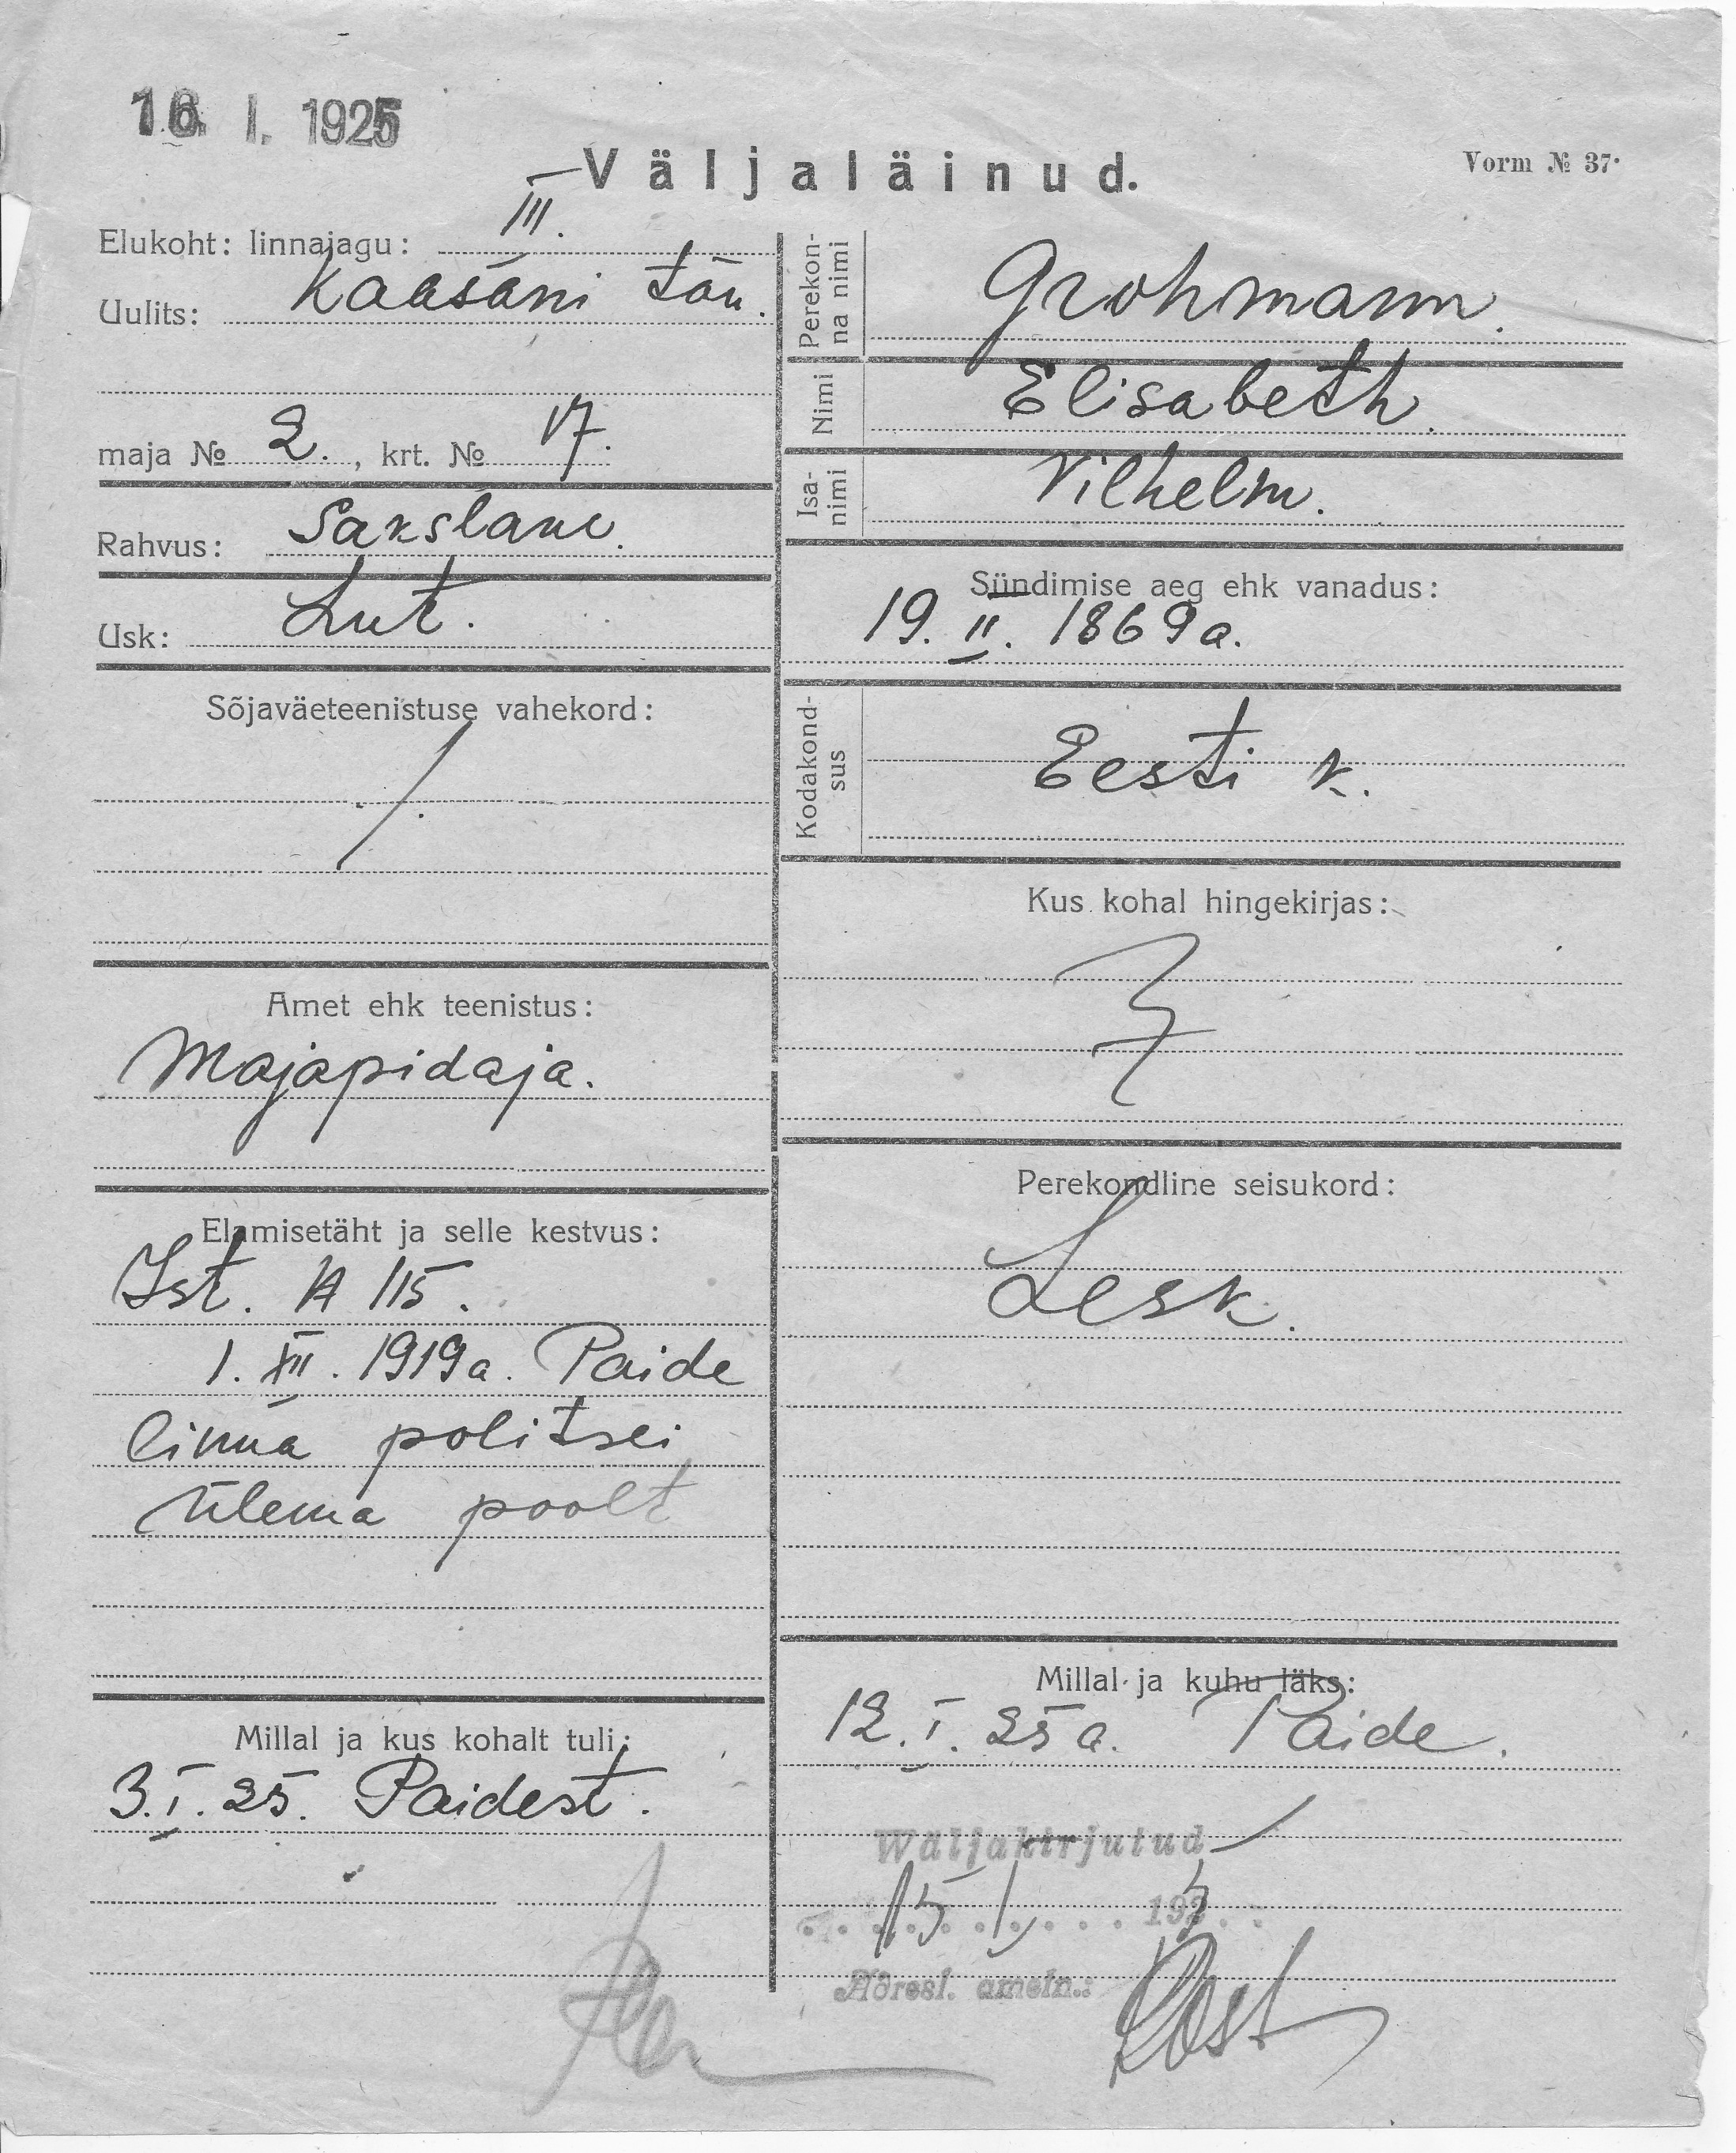 16. I. 1925
Väljaläinud.
Vorm № 37.
Elukoht: linnajagu: III.
Uulits: Kaasani tän.
maja № 2., krt. № 17.
Rahvus: Sakslane.
Usk: Lut.
Sõjaväeteenistuse vahekord:
Amet ehk teenistus:
Majapidaja.
Elamisetäht ja selle kestvus:
Ist. A 115.
1. XII. 1919 a. Paide
linna politsei
ülema poolt
Millal ja kus kohalt tuli:
3. I. 25. Paidest.
Perekonna nimi
Grohmann.
Nimi
Elisabeth.
Isanimi
Vilhelm.
Sündimise aeg ehk vanadus:
19. II. 1869 a.
Kodakondsus
Eesti k.
Kus kohal hingekirjas:
Perekondline seisukord:
Lesk.
Millal ja kuhu läks:
12. I. 25 a. Paide.
Wäljakirjutud
15 1 192
Adresl. ametn.: